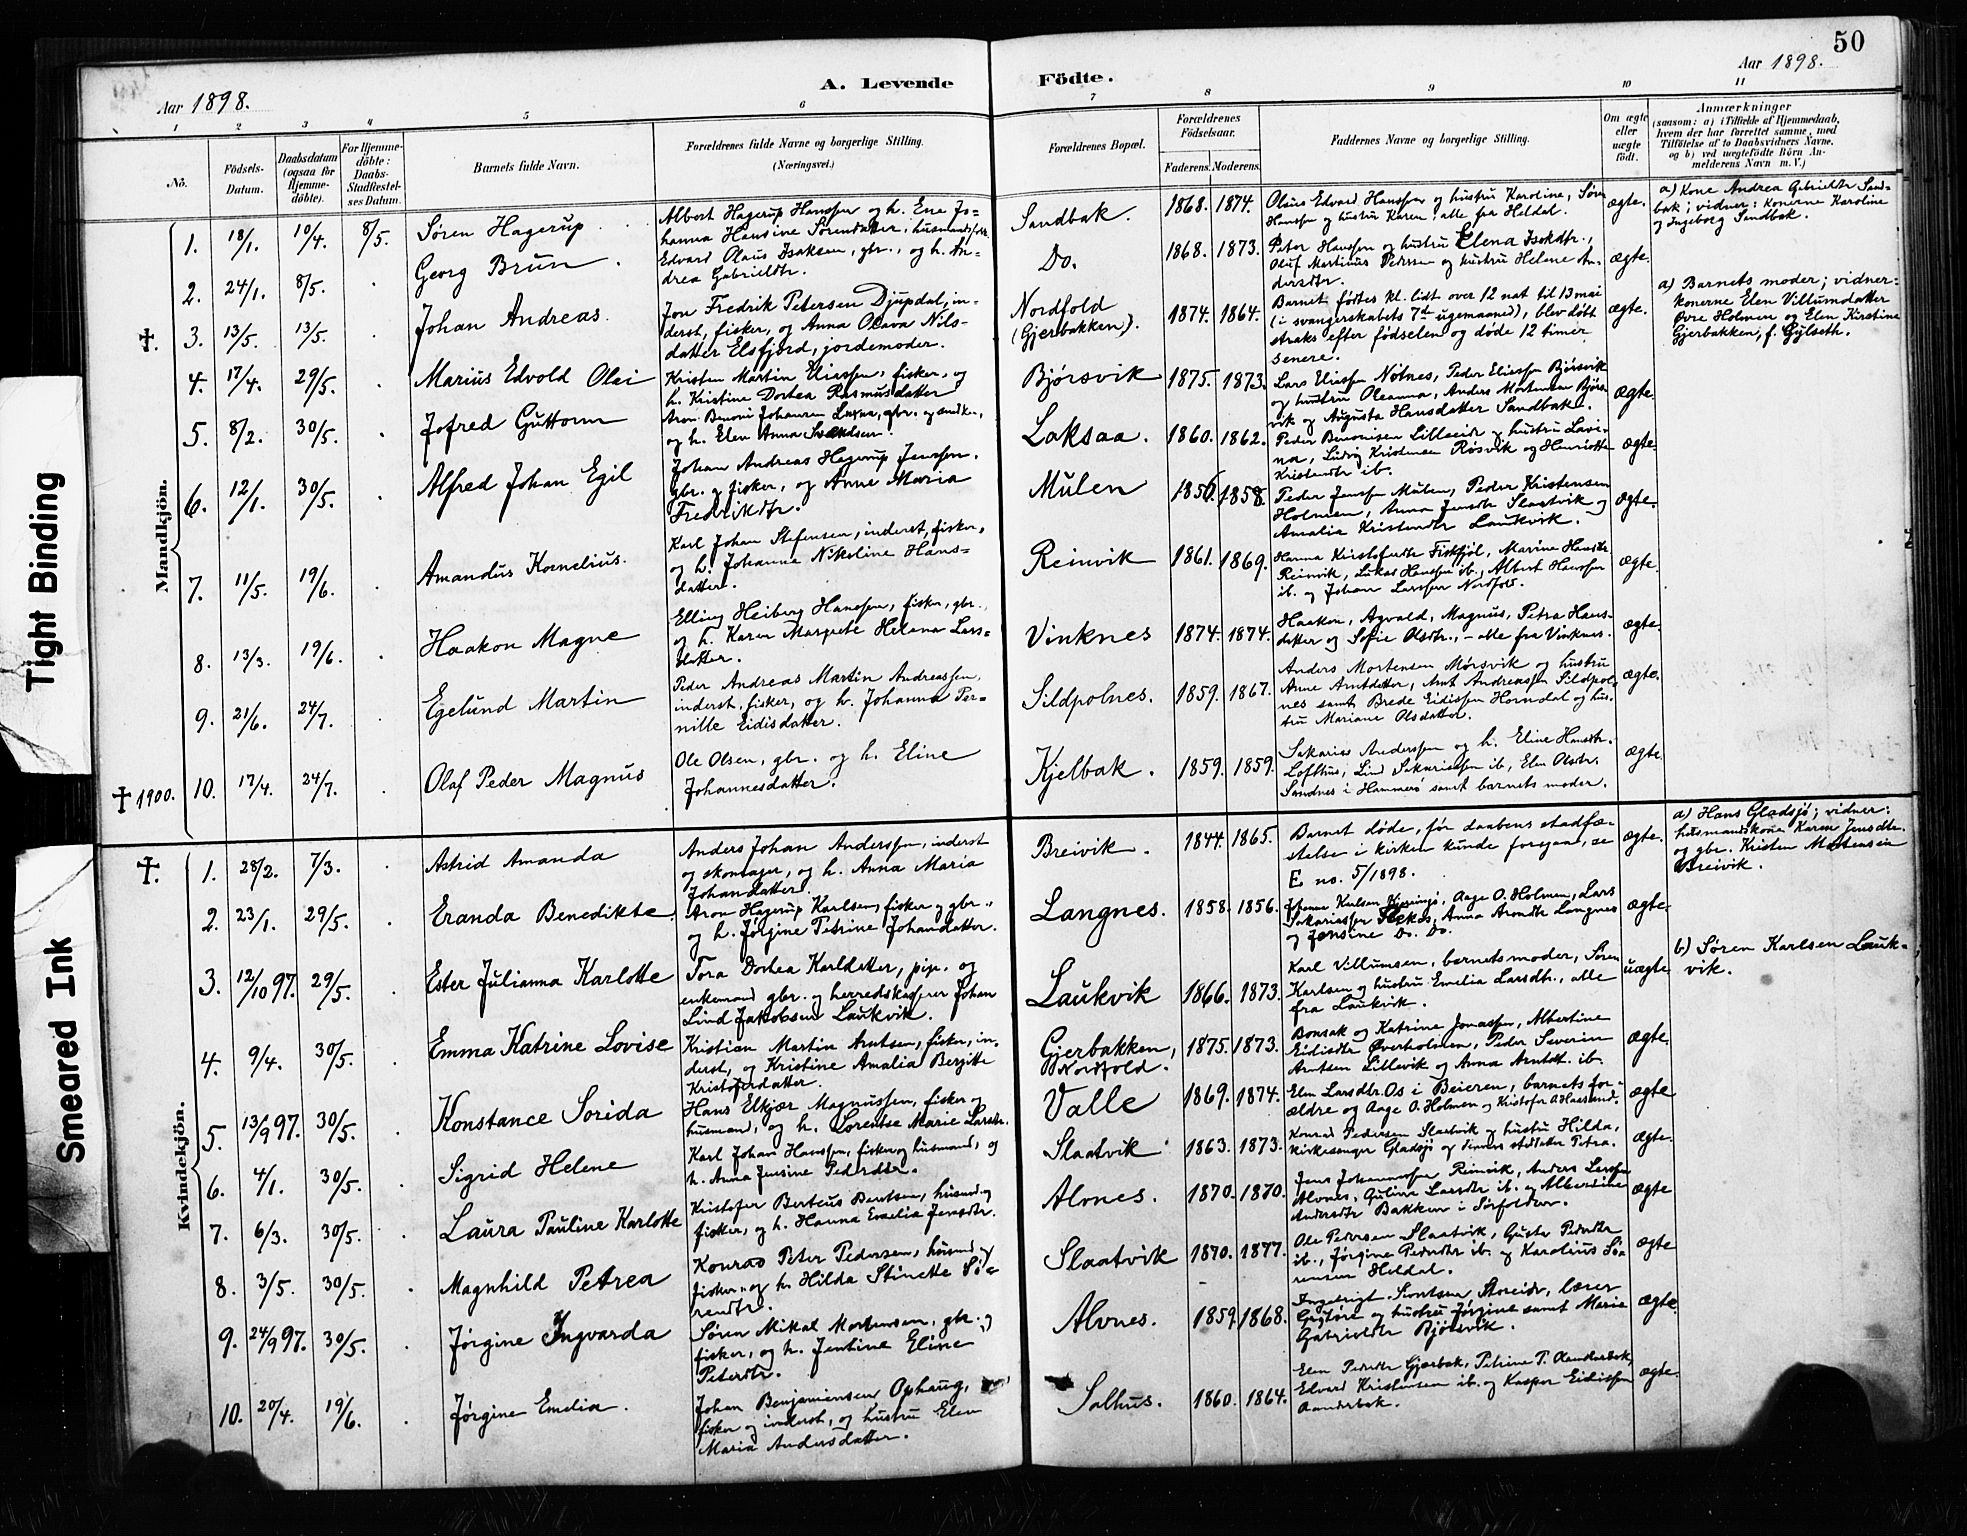 50
Aar 1898.
A. Levende Födte.
Aar 1898.
1 2 3 4 5 6 7 8 9 10 11
No.
Födsels-Datum.
Daabsdatum (ogsaa for Hjemmedöbte).
For Hjemmedöbte: Daabs-Stadfæstelses Datum.
Barnets fulde Navn.
Forældrenes fulde Navne og borgerlige Stilling.
(Næringsvei.)
Forældrenes Bopæl.
Forældrenes Födselsaar.
Faderens. Moderens.
Faddernes Navne og borgerlige Stilling.
Om ægte eller uægte födt.
Anmærkninger
(saasom: a) i Tilfælde af Hjemmedaab, hvem der har forrettet samme, med Tilföielse af to Daabsvidners Navne, og b) ved uægtefödte Börn Anmelderens Navn m. V.)
Mandkjön.
1. 18/1. 10/4. 8/5. Søren Hagerup
Albert Hagerup Hanssen og h. Ene Jo-
hanna Hansine Sørensdatter, husmandsfolk
Sandbak. 1868. 1874.
Olaus Edvard Hanssen og hustru Karoline, Søren
Hanssen og hustru Karen, alle fra Heldal.
ægte.
a) Kone Andrea Gabrieldtr Sand-
bak; vidner: Konerne Karoline
og Ingeborg Sandbak.
2. 24/1. 8/5. Georg Brun.
Edvard Olaus Isaksen, gbr., og h. An-
drea Gabrieldtr.
Do. 1868. 1873.
Peter Hanssen og hustru Elena Isakdtr.,
Oluf Martinus Pedersen og hustru Helene An-
dersdtr.
ægte.
✝. 3. 13/5. 13/5. Johan Andreas.
Jon Fredrik Petersen Djupdal, in-
derst, fisker, og Anna Olava Nils-
datter Elsfjord, jordemoder.
Nordfold
(Gjerbakken). 1874. 1864.
Barnet fødtes kl. lidt over 12 nat til 13 mai
(i svangerskabets 7de ugemaaned), blev døbt
straks efter fødselen og døde 12 timer
senere.
ægte.
a) Barnets moder; vidner:
konerne Elen Villumdatter
Øvre Holmen og Elen Kirstine
Gjerbakken, f. Gylseth.
4. 17/4. 29/5. Marius Edvold Olai
Kristen Martin Eliassen, fisker, og
h. Kristine Dortea Rasmusdatter
Bjørsvik 1875. 1873.
Lars Eliassen Notnes, Peder Eliassen Bjørsvik
og hustru Oleanna, Anders Mortensen Bjørs-
vik og Augusta Hansdatter Sandbak.
ægte.
5. 8/2. 30/5. Jofred Guttorm
Aron Benoni Johansen
og h. Elen Anna Svendsen.
Laksaa. 1860. 1862.
Peder Benonisen Lilleeid og hustru Lavi-
na, Ludvig Kristensen Røsvik og Henriette
Kristendtr ib.
ægte.
6. 12/1. 30/5. Alfred Johan Egil
Johan Andreas Hagerup Jenssen,
gbr. og fisker, og Anne Maria
Fredrikdtr.
Mulen 1856. 1858.
Peder Jenssen Mulen, Peder Kristensen
Holmen, Anna Jensdtr Slaatvik og
Amalia Kristendtr Laukvik.
ægte.
7. 11/5. 19/6. Amandus Kornelius.
Karl Johan Stefensen, inderst, fisker,
og h. Johanna Nikoline Hans-
datter.
Reinvik 1861. 1869.
Hanna Kristoferdtr Fiskfjøl, Marine Hansdtr
Reinvik, Lukas Hanssen ib., Albert Hanssen
ib. og Johan Larssen Nordfold.
ægte.
8. 13/3. 19/6. Haakon Magne
Elling Heiberg Hanssen, fisker, gbr.,
og h. Karen Margrete Helena Lars-
datter.
Vinknes 1874. 1874.
Haakon, Agvald, Magnus, Petra Hans-
datter og Sofie Olsdtr., – alle fra Vinknes.
ægte.
9. 21/6. 24/7. Egelund Martin
Peder Andreas Martin Andreassen,
inderst, fisker, og h. Johanna Per-
nille Eidisdatter.
Sildpolnes. 1859. 1867.
Anders Mortensen Mørsvik og hustru
Anne Arntdatter, Arnt Andreassen Sildpol-
nes samt Brede Eidissen Horndal og hus-
tru Mariane Olsdatter.
ægte.
✝ 1900. 10. 17/4. 24/7. Olaf Peder Magnus
Ole Olsen, gbr. og h. Eline
Johannesdatter.
Kjelbak. 1859. 1859.
Sakarias Anderssen og h. Eline Hansdtr.
Lofthus, Lind Sakariassen ib., Elen Olsdtr.
Sandnes i Hammerø samt barnets moder.
ægte.
Kvindekjön.
✝. 1. 28/2. 7/3. Astrid Amanda
Anders Johan Anderssen, inderst
og skomager, og h. Anna Maria
Johandatter.
Breivik. 1844. 1865.
Barnet døde, før daabens stadfæ-
stelse i kirken kunde foregaa, se
E no. 5/1898.
ægte.
a) Hans Gladsjø; vidner:
husmandskona Karen Jensdtr.
og gbr. Kristen Mortensen
Breivik.
2. 23/1. 29/5. Eranda Benedikte.
Aron Hagerup Karlsen, fisker og gbr.,
og h. Jørgine Petrine Johandatter.
Langnes. 1858. 1856.
Johanna Karlsen Kjerringø, Aage O. Holmen, Lars
Sakariassen, Anna Arondtr Langnes
og Jensine Do. Do.
ægte.
3. 12/10 97. 29/5. Ester Julianna Karlotte
Tora Dortea Karldatter, pige, og
enkemand gbr. og herredskasserer Johan
Lind Jakobsen Laukvik.
Laukvik 1866. 1873.
Karl Villumsen, barnets moder, Søren
Karlsen og hustru Emelia Larsdtr., alle
fra Laukvik.
uægte.
b) Søren Karlsen Lauk-
vik.
4. 9/4. 30/5. Emma Katrine Lovise
Kristian Martin Arntsen, fisker, in-
derst, og Kristine Amalia Bergitte
Kristoferdatter.
Gjerbakken,
Nordfold. 1875. 1873.
Bonsak og Katrine Jonassen, Albertine
Eidisdtr Øverholmen, Peder Severin
Arntsen Lillevik og Anna Arntdtr. ib.
ægte.
5. 13/9 97. 30/5. Konstance Sorida
Hans Elkjær Magnussen, fisker og
husmand, og h. Lorentse Marie Larsdtr.
Valle 1869. 1874.
Elen Larsdtr. Os i Beieren, barnets for-
ældre og Aage O. Holmen og Kristofer A
ægte
6. 4/1. 30/5. Sigrid Helene
Karl Johan Hanssen, fisker og husmand, og
h. Anna Jensine Pedersdtr.
Slaatvik 1863. 1873.
Konrad Pedersen Slaatvik og hustru Hilda,
kirkesanger Gladsjø og dennes steddatter Petra.
ægte.
7. 6/3. 30/5. Laura Pauline Karlotte
Kristofer Berteus Bentsen, husmd. og
fisker, og h. Hanna Emelia Jensdtr.
Alvnes. 1870. 1870.
Jens Johannessen Reinvik, Anders Larssen
Alvnes, Guline Larsdtr ib. og Albertine
Andersdtr Bakken i Sørfolden.
ægte
8. 3/5. 30/5. Magnhild Petrea
Konrad Peter Pedersen, husmd. og
fisker, og h. Hilda Stinette Sø-
rendtr.
Slaatvik 1870. 1877.
Ole Pedersen Slaatvik, Gusta Pedersdtr
ib., Jørgine Pedersdtr ib. og Karolius Sø-
rensen Heldal.
ægte
9. 24/9 97. 30/5. Jørgine Ingvarda
Søren Mikal Mortensen, gbr. og
fisker, og h. Jentine Eline
Petersdtr.
Alvnes. 1859. 1868.
Ingebrigt Sivertsen Storeide, lærer
og hustru Jørgine samt Marie
Gabrieldtr Bjørsvik.
ægte.
10. 20/4. 19/6. Jørgine Emelia.
Johan Benjaminsen Ophaug,
fisker og inderst, og hustru Elen
Maria Andersdatter.
Salhus. 1860. 1864.
Elen Pedersdtr Gjærbak, Petrine P. Aanderbak,
Edvard Kristensen ib. og Kasper Eidissen
Aanderbak.
ægte.
Tight Binding
Smeared Ink